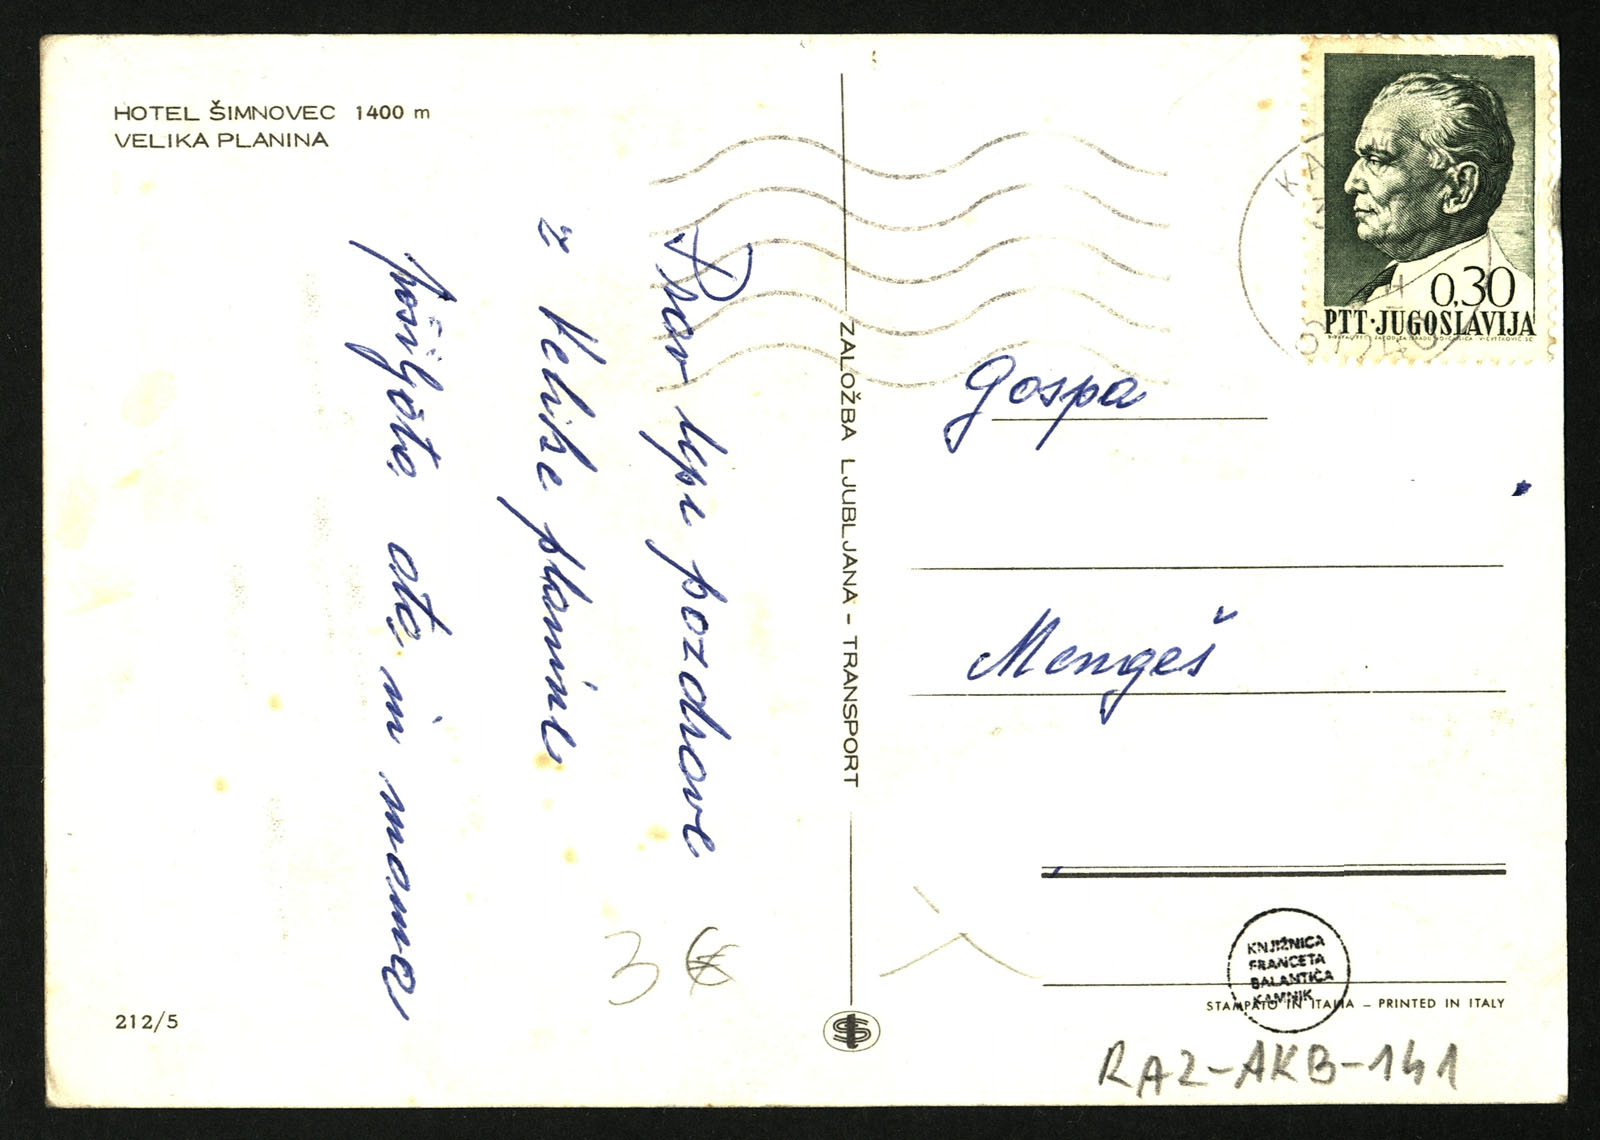 HOTEL ŠIMNOVEC 1400 m
VELIKA PLANINA
Prav lepe pozdrave
z Velike planine
pošiljata ata in mama
212/5
3 €
ZALOŽBA LJUBLJANA - TRANSPORT
0,30
PTT·JUGOSLAVIJA
Gospa
Mengeš
KNJIŽNICA
FRANCETA
BALANTIČA
KAMNIK
STAMPATO IN ITALIA – PRINTED IN ITALY
RAZ-AKB-141